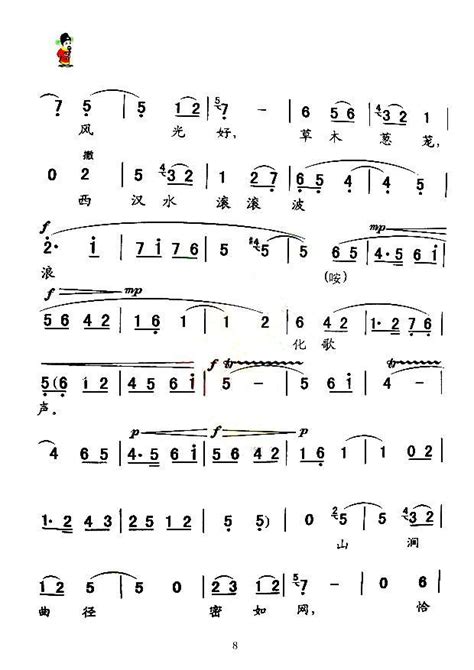 7 5 | 5 1 2 | 5 7 - | 6 5 6 | 4 3 2 1 |
风 光 好， 草 木 葱 茏，
撒
0 2 | 5 4 3 2 | 1 2 7 | 6 5 4 | 4 5 |
西 汉 水 滚 滚 波
f mp
2· i | 7 i 7 6 | 5 #4 5 | 5 6 5 | 4·5 6 i |
浪 (咹)
f mp
5 6 4 2 | 1 6 1 | 1 2 | 6 4 2 | 1·2 7 6 |
化 歌
f
5 (6 1 2 | 4 5 6 i | 5 - | 5 6 i | 5 - |
声。
p f p
4 6 5 | 4·5 6 i | 5 6 4 2 | 1 6 1 | 1 0 2 |
1·2 4 3 | 2 5 1 2 | 5 5) | 0 2 5 | 5 4 3 2 |
山 涧
1 2 5 | 5 0 | 2 3 1 2 | 5 7 - | 0 6 |
曲 径 密 如 网， 恰
8